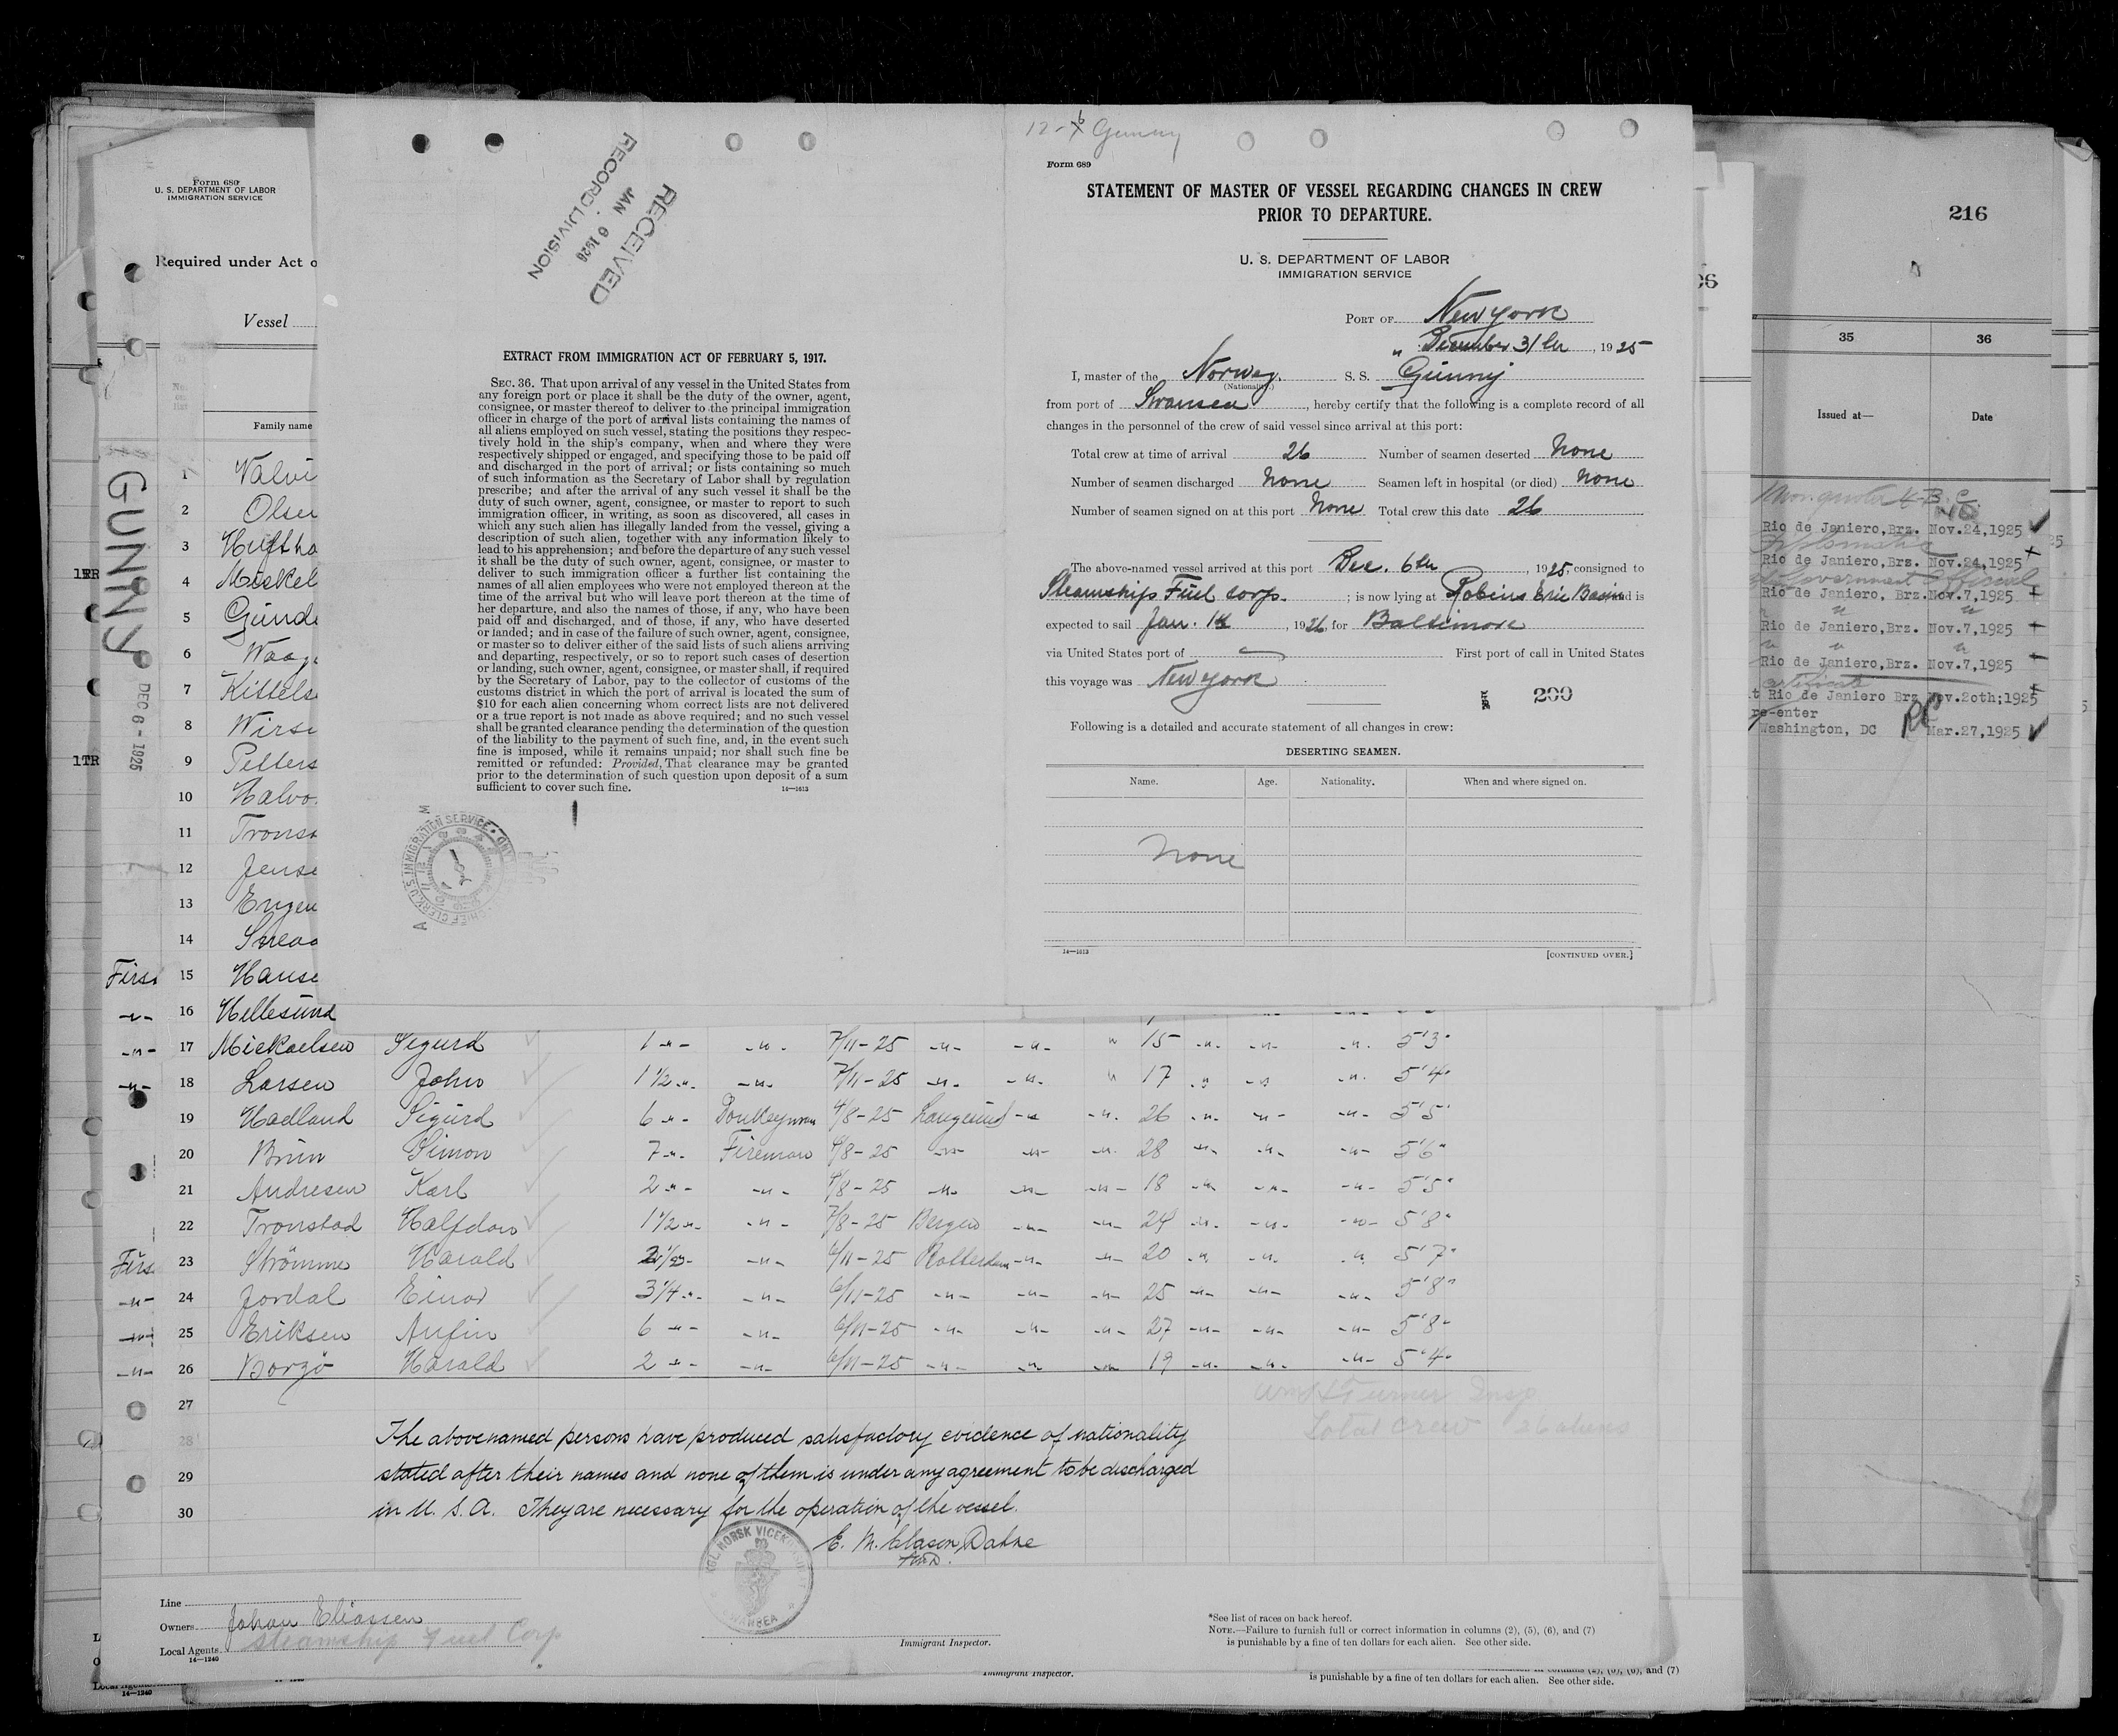 Form 680
U. S. DEPARTMENT OF LABOR
IMMIGRATION SERVICE
Required under Act o
Vessel
Family name
GUNNY
DEC 6 - 1925
1TR
1TR
1 Valvi
2 Olsen
3 Huftha
4 Miskel
5 Gunde
6 Waage
7 Kittels
8 Wirse
9 Petters
10 Halvo
11 Tronst
12 Jense
13 Engen
14
15 Hanse
16 Hellesund
RECEIVED
JAN 6 1926
RECORD DIVISION
EXTRACT FROM IMMIGRATION ACT OF FEBRUARY 5, 1917.
SEC. 36. That upon arrival of any vessel in the United States from
any foreign port or place it shall be the duty of the owner, agent,
consignee, or master thereof to deliver to the principal immigration
officer in charge of the port of arrival lists containing the names of
all aliens employed on such vessel, stating the positions they respec-
tively hold in the ship's company, when and where they were
respectively shipped or engaged, and specifying those to be paid off
and discharged in the port of arrival; or lists containing so much
of such information as the Secretary of Labor shall by regulation
prescribe; and after the arrival of any such vessel it shall be the
duty of such owner, agent, consignee, or master to report to such
immigration officer, in writing, as soon as discovered, all cases in
which any such alien has illegally landed from the vessel, giving a
description of such alien, together with any information likely to
lead to his apprehension; and before the departure of any such vessel
it shall be the duty of such owner, agent, consignee, or master to
deliver to such immigration officer a further list containing the
names of all alien employees who were not employed thereon at the
time of the arrival but who will leave port thereon at the time of
her departure, and also the names of those, if any, who have been
paid off and discharged, and of those, if any, who have deserted
or landed; and in case of the failure of such owner, agent, consignee,
or master so to deliver either of the said lists of such aliens arriving
and departing, respectively, or so to report such cases of desertion
or landing, such owner, agent, consignee, or master shall, if required
by the Secretary of Labor, pay to the collector of customs of the
customs district in which the port of arrival is located the sum of
$10 for each alien concerning whom correct lists are not delivered
or a true report is not made as above required; and no such vessel
shall be granted clearance pending the determination of the question
of the liability to the payment of such fine, and, in the event such
fine is imposed, while it remains unpaid; nor shall such fine be
remitted or refunded: Provided, That clearance may be granted
prior to the determination of such question upon deposit of a sum
sufficient to cover such fine.
14—1613
12-6 Gunny
Form 689
STATEMENT OF MASTER OF VESSEL REGARDING CHANGES IN CREW
PRIOR TO DEPARTURE.
U. S. DEPARTMENT OF LABOR
IMMIGRATION SERVICE
PORT OF New York
" December 31th, 1925
I, master of the Norweg. S. S. Gunny
(Nationality.)
from port of Swansea, hereby certify that the following is a complete record of all
changes in the personnel of the crew of said vessel since arrival at this port:
Total crew at time of arrival 26 Number of seamen deserted None
Number of seamen discharged None Seamen left in hospital (or died) None
Number of seamen signed on at this port None Total crew this date 26
The above-named vessel arrived at this port Dec. 6th, 1925, consigned to
Steamship Fuel Corp. ; is now lying at Robins Erie Basin and is
expected to sail Jan. 1st, 1926, for Baltimore
via United States port of — First port of call in United States
this voyage was New York
200
Following is a detailed and accurate statement of all changes in crew:
DESERTING SEAMEN.
Name. Age. Nationality. When and where signed on.
None
14—1613
[CONTINUED OVER.]
216
35 36
Issued at— Date
Rio de Janiero,Brz. Nov.24,1925
Diplomatic
Rio de Janiero,Brz. Nov.24,1925
Government Official
Rio de Janiero, Brz. Nov.7,1925
Rio de Janiero,Brz. Nov.7,1925
Rio de Janiero,Brz. Nov.7,1925
certificate
t Rio de Janiero Brz Nov.20th;1925
re-enter
Washington, DC Mar.27,1925
17 Mickaelsen Sigurd 1 -"- -"- 7/11-25 -"- -"- " 15 -"- -"- -"- 5'3"
18 Larsen John 1 1/2 -"- -"- 7/11-25 -"- -"- " 17 -"- -"- -"- 5'4"
19 Hadland Sigurd 6 -"- Donkeyman 4/8-25 Langesund -"- -"- 26 -"- -"- -"- 5'5"
20 Brun Simon 7 -"- Fireman 4/8-25 -"- -"- -"- 28 -"- -"- -"- 5'6"
21 Andresen Karl 2 -"- -"- 4/8-25 -"- -"- -"- 18 -"- -"- -"- 5'5"
22 Tronstad Halfdan 1 1/2 -"- -"- 7/8-25 Bergen -"- -"- 24 -"- -"- -"- 5'8"
23 Strömme Harald -"- 6/11-25 Rotterdam -"- -"- 20 -"- -"- -"- 5'7"
24 Jordal Einar 3 1/4 -"- -"- 6/11-25 -"- -"- -"- 25 -"- -"- -"- 5'8"
25 Eriksen Anfin 6 -"- -"- 6/11-25 -"- -"- -"- 27 -"- -"- -"- 5'8"
26 Borgö Harald 2 -"- -"- 6/11-25 -"- -"- -"- 19 -"- -"- -"- 5'4"
27
Wm H Turner Insp
Total crew 26 aliens
28 The abovenamed persons have produced satisfactory evidence of nationality
29 stated after their names and none of them is under any agreement to be discharged
30 in U. S. A. They are necessary for the operation of the vessel.
E. M. Clason Dahne
KGL NORSK VICEKONSULAT
SWANSEA
Line
Owners Johan Eliassen
Local Agents Steamship Fuel Corp
14—1240
Immigrant Inspector.
*See list of races on back hereof.
NOTE.—Failure to furnish full or correct information in columns (2), (5), (6), and (7)
is punishable by a fine of ten dollars for each alien. See other side.
Immigrant Inspector.
is punishable by a fine of ten dollars for each alien. See other side.
14—1240